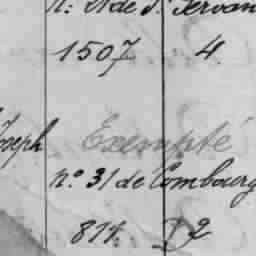 n: 21 de St. Servan
1507 4.
Joseph Exempté
n° 31 de Combourg
811. D 2